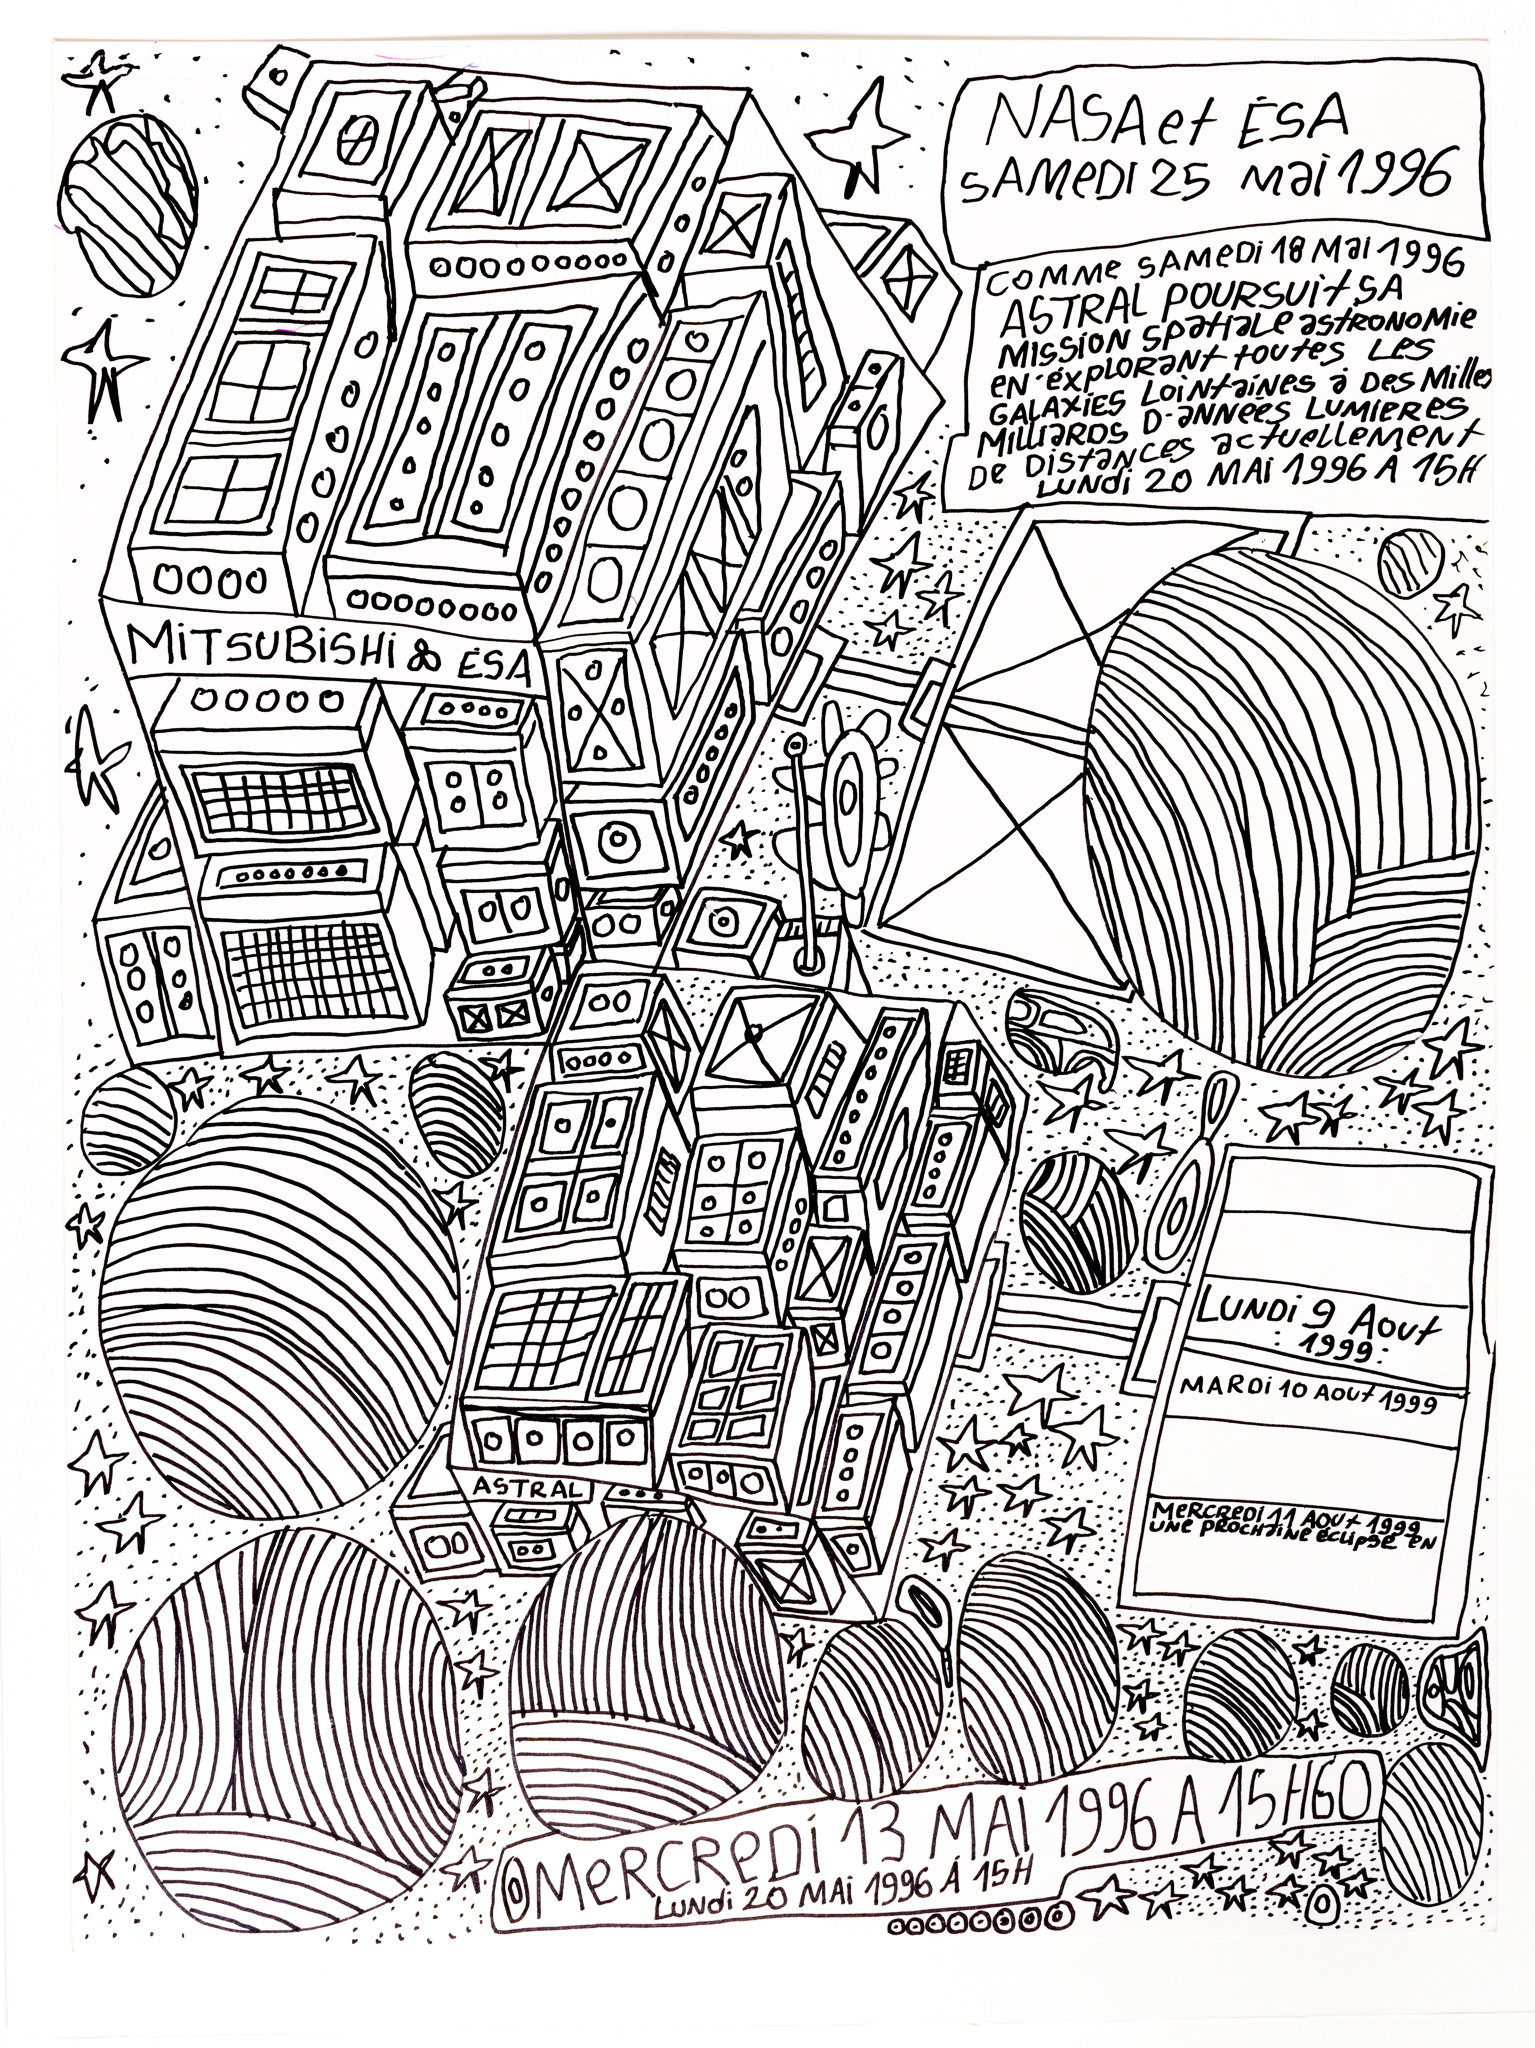 NASA et ESA
SAMEDI 25 MAI 1996
COMME SAMEDI 18 MAI 1996
ASTRAL POURSUIT SA
MISSION SPATIALE ASTRONOMIE
EN EXPLORANT TOUTES LES
GALAXIES LOINTAINES à DES MILLES
MILLIARDS D'ANNÉES LUMIERES
DE DISTANCES ACTUELLEMENT
LUNDI 20 MAI 1996 A 15H
MITSUBISHI & ESA
LUNDI 9 AOUT
1999
MARDI 10 AOUT 1999
MERCREDI 11 AOUT 1999
UNE PROCHAINE ÉCLIPSE EN
ASTRAL
MERCREDI 13 MAI 1996 A 15H60
LUNDI 20 MAI 1996 À 15H